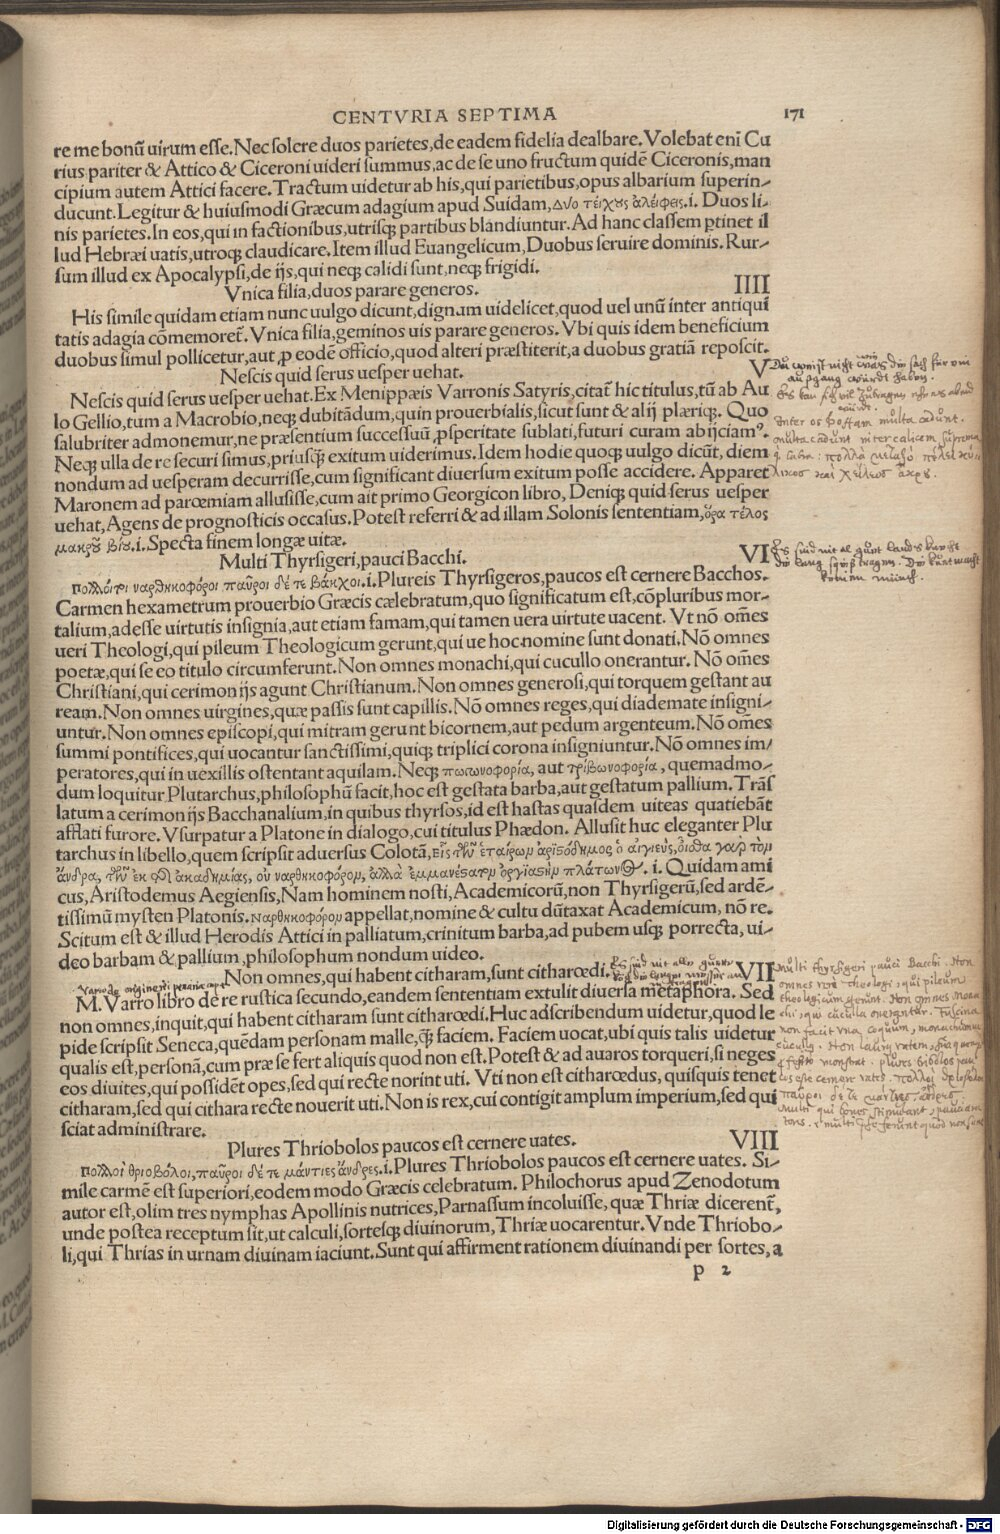 CENTVRIA SEPTIMA 171
re me bonũ uirum esse. Nec solere duos parietes, de eadem fidelia dealbare. Volebat enĩ Cu
rius pariter & Attico & Ciceroni uideri summus, ac de se uno fructum quidẽ Ciceronis, man
cipium autem Attici facere. Tractum uidetur ab his, qui parietibus, opus albarium superin-
ducunt. Legitur & huiusmodi Græcum adagium apud Suidam, Δυο τείχους ἀλείφεις .i. Duos li-
nis parietes. In eos, qui in factionibus, utrisq; partibus blandiuntur. Ad hanc classem ꝑtinet il
lud Hebræi uatis, utroq; claudicare. Item illud Euangelicum, Duobus seruire dominis. Rur-
sum illud ex Apocalypsi, de ijs, qui neq; calidi sunt, neq; frigidi.
Vnica filia, duos parare generos. IIII
His simile quidam etiam nunc uulgo dicunt, dignum uidelicet, quod uel unũ inter antiqui
tatis adagia cõmemoret̃. Vnica filia, geminos uis parare generos. Vbi quis idem beneficium
duobus simul pollicetur, aut ꝓ eodẽ officio, quod alteri præstiterit, a duobus gratiã reposcit.
Nescis quid serus uesper uehat. V
Nescis quid serus uesper uehat. Ex Menippæis Varronis Satyris, citat̃ hic titulus, tũ ab Au
lo Gellio, tum a Macrobio, neq; dubitãdum, quin prouerbialis, sicut sunt & alij plæriq;. Quo
salubriter admonemur, ne præsentium successuũ, ꝓsperitate sublati, futuri curam abijciamꝰ.
Neq; ulla de re securi simus, priusq̃; exitum uiderimus. Idem hodie quoq; uulgo dicũt, diem
nondum ad uesperam decurrisse, cum significant diuersum exitum posse accidere. Apparet
Maronem ad parœmiam allusisse, cum ait primo Georgicon libro, Deniq; quid serus uesper
uehat, Agens de prognosticis occasus. Potest referri & ad illam Solonis sententiam, ὅρα τέλος
μακροῦ βίου .i. Specta finem longæ uitæ.
Multi Thyrsigeri, pauci Bacchi. VI
πολλόι τοι ναρθηκοφόροι παῦροι δέ τε βάκχοι .i. Plureis Thyrsigeros, paucos est cernere Bacchos.
Carmen hexametrum prouerbio Græcis cælebratum, quo significatum est, cõpluribus mor-
talium, adesse uirtutis insignia, aut etiam famam, qui tamen uera uirtute uacent. Vt nõ om̃es
ueri Theologi, qui pileum Theologicum gerunt, qui ue hoc nomine sunt donati. Nõ omnes
poetæ, qui se eo titulo circumferunt. Non omnes monachi, qui cucullo onerantur. Nõ om̃es
Christiani, qui cerimonijs agunt Christianum. Non omnes generosi, qui torquem gestant au
ream. Non omnes uirgines, quæ passis sunt capillis. Nõ omnes reges, qui diademate insigni-
untur. Non omnes episcopi, qui mitram gerunt bicornem, aut pedum argenteum. Nõ om̃es
summi pontifices, qui uocantur sanctissimi, quiq; triplici corona insigniuntur. Nõ omnes im-
peratores, qui in uexillis ostentant aquilam. Neq; πωγωνοφορία, aut τριβωνοφορία, quemadmo-
dum loquitur Plutarchus, philosophũ facit, hoc est gestata barba, aut gestatum pallium. Trãs
latum a cerimonijs Bacchanalium, in quibus thyrsos, id est hastas quasdem uiteas quatiebãt
afflati furore. Vsurpatur a Platone in dialogo, cui titulus Phædon. Allusit huc eleganter Plu
tarchus in libello, quem scripsit aduersus Colotã, εἷς τῶν ἑταίρων ἀριστόδημος ὁ αἰγιεὺς, οἶσθα γὰρ τὸν
ἄνδρα, τῶν ἐκ τῆς ἀκαδημίας, οὐ ναρθηκοφόρον, ἀλλὰ ἐμμανέστατον ὀργιαστὴν πλάτωνος. i. Quidam ami
cus, Aristodemus Aegiensis, Nam hominem nosti, Academicorũ, non Thyrsigerũ, sed ardẽ-
tissimũ mysten Platonis. ναρθηκοφόρον appellat, nomine & cultu dũtaxat Academicum, nõ re.
Scitum est & illud Herodis Attici in palliatum, crinitum barba, ad pubem usq; porrecta, ui-
deo barbam & pallium, philosophum nondum uideo.
Non omnes, qui habent citharam, sunt citharœdi. VII
M. Varro libro de re rustica secundo, eandem sententiam extulit diuersa metaphora. Sed
non omnes, inquit, qui habent citharam sunt citharœdi. Huc adscribendum uidetur, quod le
pide scripsit Seneca, quẽdam personam malle, q̃; faciem. Faciem uocat, ubi quis talis uidetur
qualis est, personã, cum præ se fert aliquis quod non est. Potest & ad auaros torqueri, si neges
eos diuites, qui possidẽt opes, sed qui recte norint uti. Vti non est citharœdus, quisquis tenet
citharam, sed qui cithara recte nouerit uti. Non is rex, cui contigit amplum imperium, sed qui
sciat administrare.
Plures Thriobolos paucos est cernere uates. VIII
πολλοὶ θριοβόλοι, παῦροι δέ τε μάντιες ἄνδρες .i. Plures Thriobolos paucos est cernere uates. Si-
mile carmẽ est superiori, eodem modo Græcis celebratum. Philochorus apud Zenodotum
autor est, olim tres nymphas Apollinis nutrices, Parnassum incoluisse, quæ Thriæ dicerent̃,
unde postea receptum sit, ut calculi, sortesq; diuinorum, Thriæ uocarentur. Vnde Thriobo-
li, qui Thrias in urnam diuinam iaciunt. Sunt qui affirment rationem diuinandi per sortes, a
p 2
Inter os & offam multa cadunt.
multa cadunt inter calicem suprema
multi thyrsigeri pauci Bacchi. Non
omnes theologi, qui pileum
theologicum gerunt. Non omnes mona
Digitalisierung gefördert durch die Deutsche Forschungsgemeinschaft - DFG